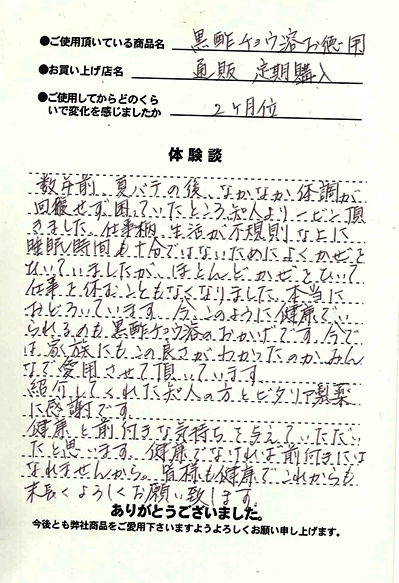 ●ご使用頂いている商品名 黒酢チョウ溶お徳用
●お買い上げ店名 通販 定期購入
●ご使用してからどのくら
いで変化を感じましたか 2ヶ月位
体験談
数年前、夏バテの後、なかなか体調が
回復せず困っていたところ、知人より一ビン頂
きました。仕事柄、生活が不規則な上に
睡眠時間も十分ではないためによくかぜを
ひいていましたが、ほとんどかぜをひいて
仕事を休むこともなくなりました。本当に
おどろいています。今、このように健康でい
られるのも黒酢チョウ溶のおかげです。今で
は家族にもこの良さがわかったのかみん
なで愛用させて頂いています。
紹介してくれた知人の方とビタリア製薬
に感謝です。
健康と前付きな気持ちを与えていただい
たと思います。健康でなければ前付きには
なれませんから。皆様も健康でこれからも
末長くよろしくお願い致します。
ありがとうございました。
今後とも弊社商品をご愛用下さいますようよろしくお願い申し上げます。